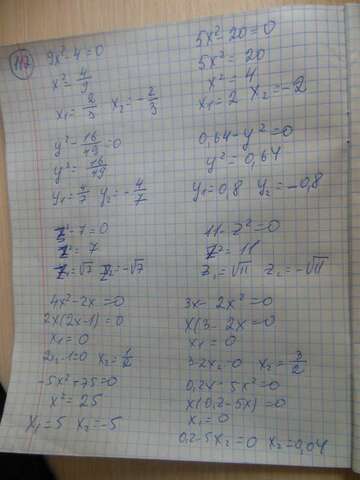 117
9x²-4=0
x²=4/9
x₁=2/3 x₂=-2/3
y²-16/49=0
y²=16/49
y₁=4/7 y₂=-4/7
z²-7=0
z²=7
z₁=√7 z₂=-√7
4x²-2x=0
2x(2x-1)=0
x₁=0
2x₂-1=0 x₂=1/2
-5x²+75=0
x²=25
x₁=5 x₂=-5
5x²-20=0
5x²=20
x²=4
x₁=2 x₂=-2
0,64-y²=0
y²=0,64
y₁=0,8 y₂=-0,8
11-z²=0
z²=11
z₁=√11 z₂=-√11
3x-2x²=0
x(3-2x=0
x₁=0
3-2x₂=0 x₂=3/2
0,2x-5x²=0
x(0,2-5x)=0
x₁=0
0,2-5x₂=0 x₂=0,04